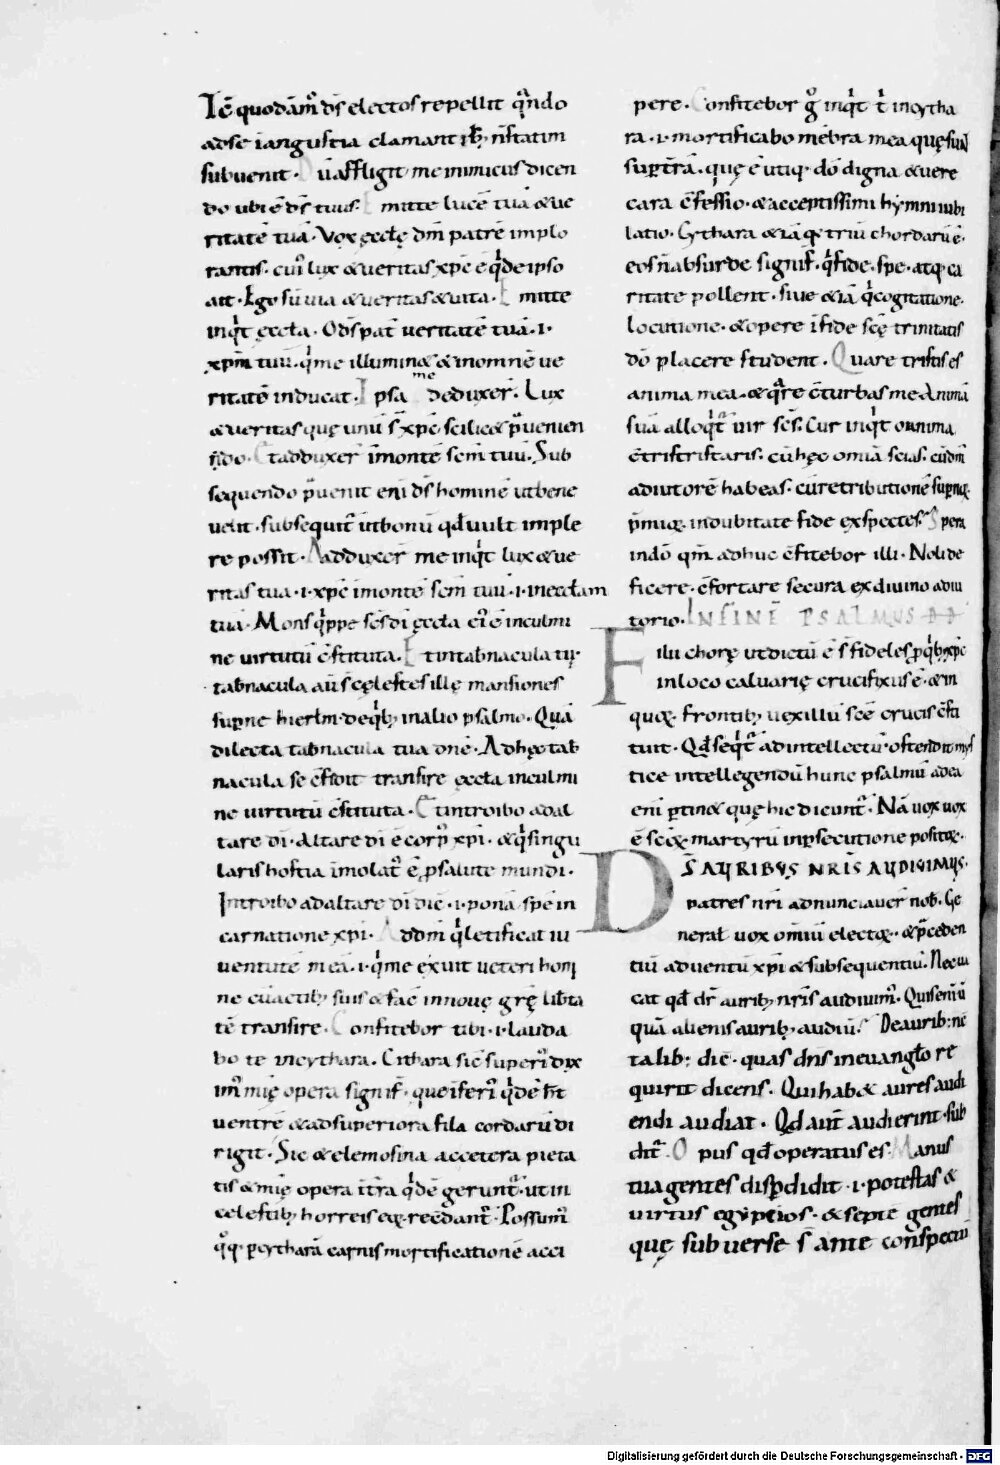 Tē quodāmͦ dš electos repellit qn̄do
ad se ī angustia clamantibȝ n̄ statim
subuenit. Dū affligit me inimicus dicen
do ubi ē dš tuus. Emitte lucē tuā & ue
ritatē tuā. Vox ęcclę dm̄ patrē implo
rantis. cuiꝰ lux & ueritas xp̄c ē qͥ de ipso
ait. Ego sū uia & ueritas & uita. Emitte
inqͥt ęccla. O dš pat̄ ueritatē tuā .i.
xpm̄ tuū. qͥ me illumin& & in omnē ue
ritatē inducat. Ipsa me deduxer̄. Lux
& ueritas quę unū s̄ xp̄c. scilic& p̄uenien
do. Et adduxer̄ ī montē scm̄ tuū. Sub
sequendo p̄uenit eni dš hominē ut bene
uelit. subsequit̄ ut bonū qd̄ uult imple
re possit. Adduxer̄ me inqͥt lux & ue
ritas tua .i. xp̄c ī montē scm̄ tuū .i. in ecclam
tuā. Mons qͥppe scš dī ęccla eiꝰ ē in culmi
ne uirtutū c̄stituta. Et in tabnacula tu
tabnacula aū s̄ cęlestes illę mansiones
supne hierlm̄. de qͥbȝ in alio psalmo. Quā
dilecta tabnacula tua dn̄e. Ad hęc tab
nacula se c̄fidit transire ęccla in culmi
ne uirtutū c̄stituta. Et introibo ad al
tare dī. Altare dī ē corpꝰ xp̄i. & qͥ singu
laris hostia īmolat̄ ē p salute mundi.
Introibo ad altare dī dic̄ .i. ponā spē in
carnatione xp̄i. Ad dm̄ qͥ letificat iu
uentutē meā .i. qͥ me exuit ueteri homi
ne cū actibȝ suis & fac̄ in nouę grę lib̄ta
tē transire. Confitebor tibi .i. lauda
bo te in cythara. Cithara sic superiꝰ dix
imꝰ mię opera signif̄. que īferiꝰ qͥdē ht̄
uentrē & ad superiora fila cordarū di
rigit. Sic & elemosina & cetera pieta
tis & mię opera ī t̄ra qͥdē gerunt̄. ut in
celestibȝ horreis eq recōdant̄. Possumꝰ
qͦq p cytharā carnis mortificationē acci
pere. Confitebor gͦ inqͥt tͥ in cytha
ra .i. mortificabo mēbra mea quę sunt
sup t̄rā. quę ē utiq dō digna & uere
cara c̄fessio. & acceptissimi hymni iubi
latio. Cythara & iā q triū chordarū ē.
eos n̄ absurde signif̄. qͥ fide. spe. atq ca
ritate pollent. siue & iā qͥ cogitatione.
locutione. & opere ī fide scę trinitatis
dō placere student. Quare tristis es
anima mea. & qͣre c̄turbas me. Animā
suā alloqͥt̄ uir scš. Cur inqͥt o anima
c̄tristaris. cū hęc omia scias. cū dm̄
adiutorē habeas. cū retributionē supnę
p̄mię indubitate fide exspectes. Spera
in dō qm̄ adhuc c̄fitebor illi. Noli de
ficere. c̄fortare secura ex diuino adiu
torio. IN FINĒ PSALMUS DD
Filii chorę ut dictū ē s̄ fideles p qͥbȝ xp̄c
in loco caluarię crucifixus ē. & in
quoꝝ frontibȝ uexillū scē crucis c̄sti
tuit. Qd̄ seqͥt̄ ad intellectū. ostendit mys
tice intellegendū hunc psalmū ad ea
eni ptin& quę hic dicunt̄. Nā uox uox
ē scoꝝ martyrū in psecutione positoꝝ.
DŠ AURIBUS NRĪS AUDIUIMUS.
patres nrī adnunciauer̄ nob̄. Ge
neral̄ uox omiū electoꝝ. & p̄ceden
tiū aduentū xp̄i & subsequentiū. Nec ua
cat qd̄ dr̄ auribȝ nrīs audiuimꝰ. Qui seniū
quā alienis auribȝ audiū. De aurib: nē
talib: dic̄. quas dns̄ in euanglo re
quirit dicens. Qui hab& aures audi
endi audiat. Qd aut̄ audierint sub
dit̄. Opus qd̄ operatus es. Manus
tua gentes dispdidit .i. potestas &
uirtus egyptios. & septē gentes
quę subuerse s̄ ante conspectū